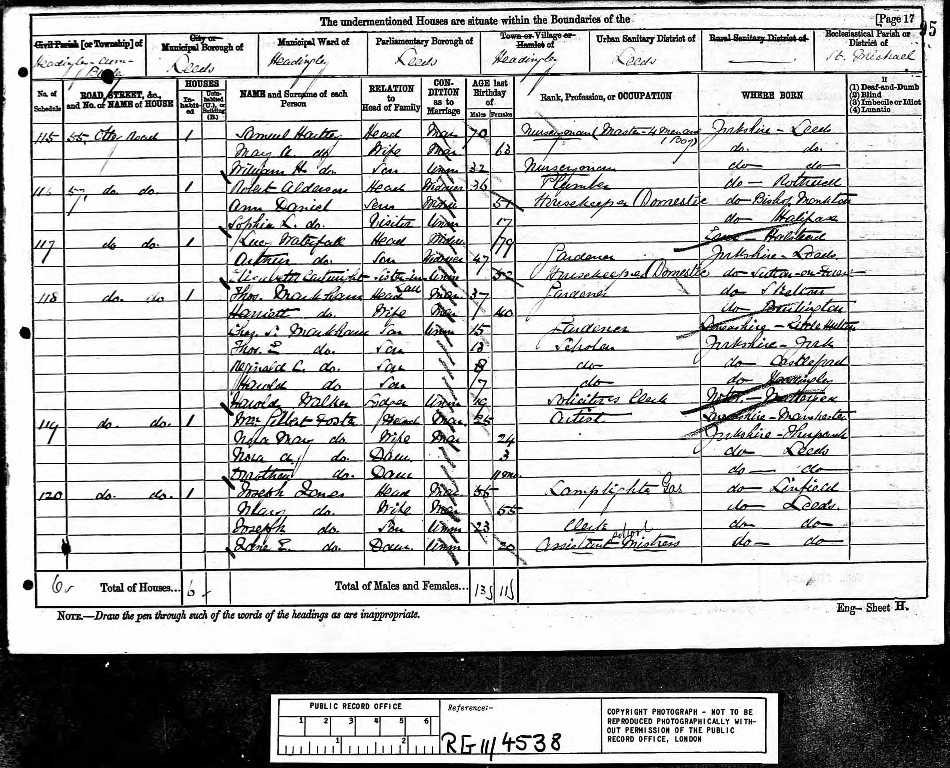 The undermentioned Houses are situate within the Boundaries of the
[Page 17
95
Civil Parish [or Township] of
Headingley-cum-
City or
Municipal Borough of
Leeds
Municipal Ward of
Headingley
Parliamentary Borough of
Leeds
Town or Village or
Hamlet of
Headingley
Urban Sanitary District of
Leeds
Rural Sanitary District of
Ecclesiastical Parish or
District of
St. Michael
No. of Schedule
ROAD, STREET, &c., and No. or NAME of HOUSE
HOUSES
In-habit-ed
Unin-habited (U.), or Building (B.)
NAME and Surname of each Person
RELATION to Head of Family
CON-DITION as to Marriage
AGE last Birthday of
Males
Females
Rank, Profession, or OCCUPATION
WHERE BORN
If
(1) Deaf-and-Dumb
(2) Blind
(3) Imbecile or Idiot
(4) Lunatic
115 55 Otley Road 1 Samuel Head Mar 70 Nurseryman (Master 4 men and 1 Boy) Yorkshire - Leeds
Mary A. do Wife Mar 63 do do
William H. do Son Unm 32 Nurseryman do do
116 57 do do 1 Robert Alderson Head 36 Plumber do - Rothwell
Ann Daniel 51 Housekeeper Domestic do - Bishop Monkton
Sophia L. do Visitor Unm 17 do Halifax
117 do do 1 Head 79
Arthur do Son 47 Gardener Yorkshire - Leeds
Cartwright Sister in Law Unm 52 Housekeeper Domestic do
118 do do 1 Thos. Markham Head Mar 37 Gardener do Skelton
Harriett do Wife Mar 40 do
Markham Son Unm 15 Gardener
Thos. E. do Son 13 Scholar Yorkshire - York
Reginald C. do Son 8 do do Castleford
Harold do Son 7 do do
Harold Walker Unm 16 Solicitors Clerk
119 do do 1 Wm Foster Head Mar 25 Artist Lancashire - Manchester
Nora May do Wife Mar 24 Yorkshire
Nora A. do Daur 3 do Leeds
do Daur 11 mo do do
120 do do 1 Joseph Jones Head Mar 56 Lamplighter Gas do - Linfield
Mary do Wife Mar 55 do Leeds.
Joseph do Son Unm 23 Clerk do do
Jane E. do Daur Unm 20 Assistant School Mistress do do
6 Total of Houses... 6 Total of Males and Females... 13 11
NOTE.—Draw the pen through such of the words of the headings as are inappropriate.
Eng— Sheet H.
PUBLIC RECORD OFFICE
1 2 3 4 5 6
1 2
Reference:-
RG 11/4538
COPYRIGHT PHOTOGRAPH - NOT TO BE
REPRODUCED PHOTOGRAPHICALLY WITH-
OUT PERMISSION OF THE PUBLIC
RECORD OFFICE, LONDON